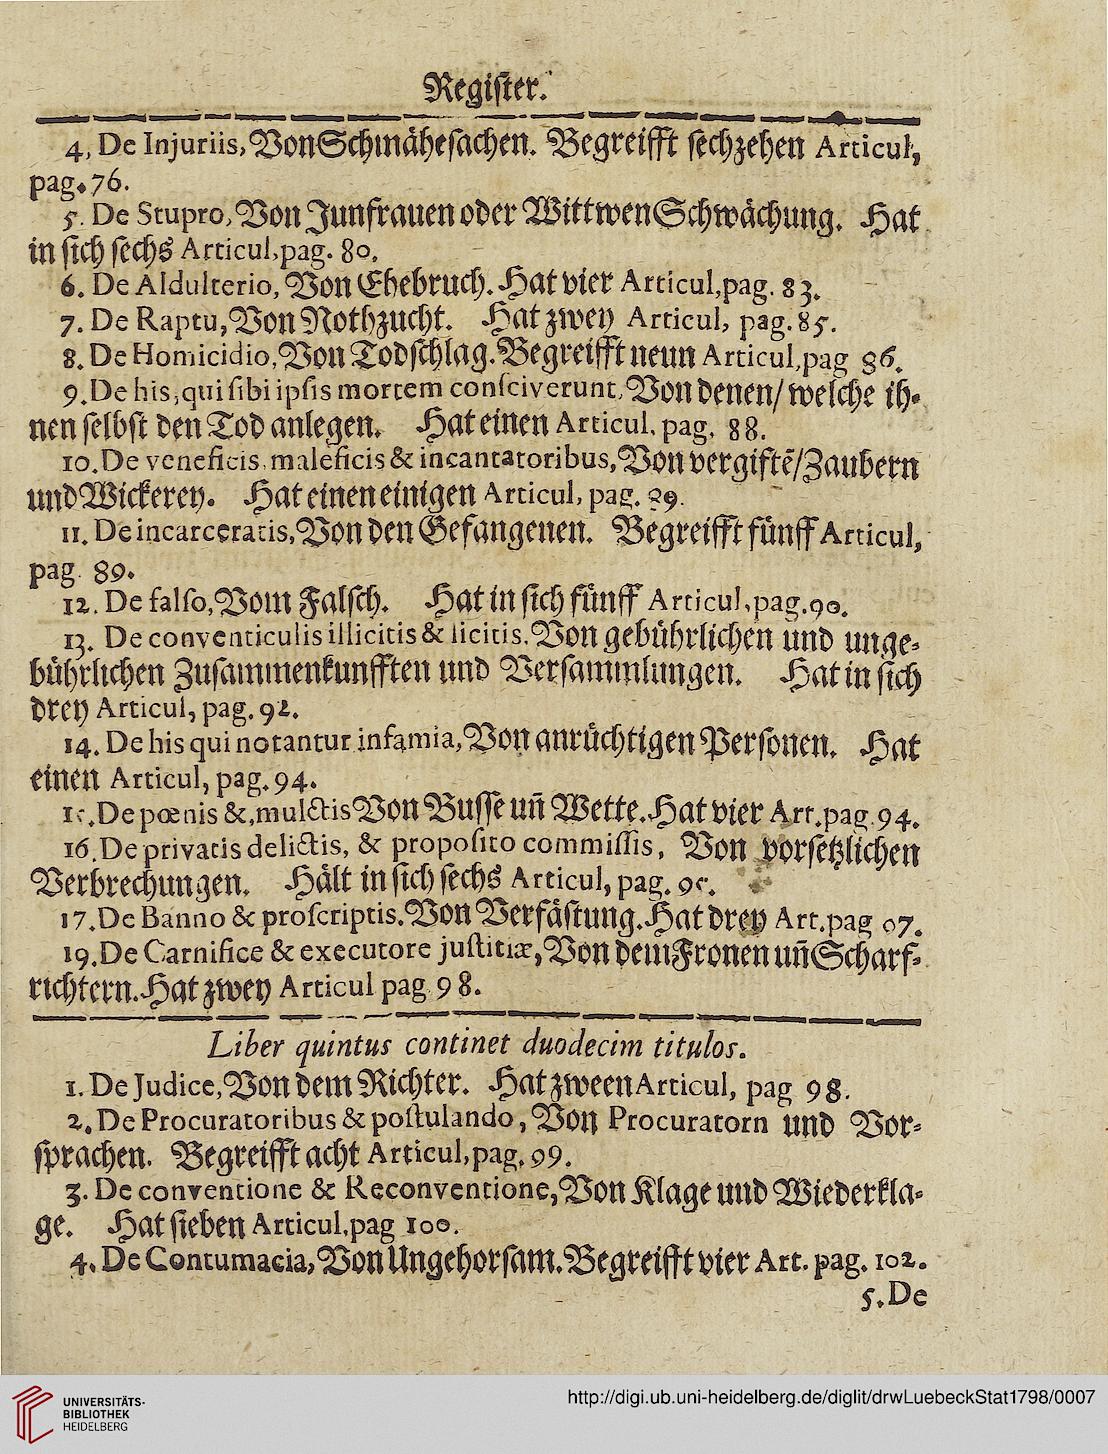 Register.
4, De Injuriis, Von Schmähesachen. Begreifft sechzehen Articul,
pag. 76.
5. De Stupro, Von Junfrauen oder Wittwen Schwächung. Hat
in sich sechs Articul, pag. 80.
6. De Aldulterio, Von Ehebruch. Hat vier Articul, pag. 83.
7. De Raptu, Von Nothzucht. Hat zwey Articul, pag. 85.
8. De Homicidio, Von Todschlag. Begreifft neun Articul, pag 86.
9. De his, qui sibi ipsis mortem consciverunt, Von denen/ welche ih-
nen selbst den Tod anlegen. Hat einen Articul, pag. 88.
10. De veneficis, maleficis & incantatoribus, Von vergiftē/ Zaubern
und Wickerey. Hat einen einigen Articul, pag. 89.
11. De incarceratis, Von den Gefangenen. Begreifft fünff Articul,
pag. 89.
12. De falso, Vom Falsch. Hat in sich fünff Articul, pag. 90.
13. De conventiculis illicitis & licitis. Von gebührlichen und unge-
bührlichen Zusammenkunfften und Versammlungen. Hat in sich
drey Articul, pag. 92.
14. De his qui notantur infamia, Von anrüchtigen Personen. Hat
einen Articul, pag. 94.
15. De pœnis &, mulctis Von Busse uñ Wette. Hat vier Art. pag. 94.
16. De privatis delictis, & proposito commissis, Von vorsetzlichen
Verbrechungen. Hält in sich sechs Articul, pag. 95.
17. De Banno & proscriptis. Von Verfästung. Hat drey Art. pag 97.
19. De Carnifice & executore justitiæ, Von dem Fronen uñ Scharf-
richtern. Hat zwey Articul pag 98.
Liber quintus continet duodecim titulos.
1. De Judice, Von dem Richter. Hat zween Articul, pag 98.
2. De Procuratoribus & postulando, Von Procuratorn und Vor-
sprachen. Begreifft acht Articul, pag. 99.
3. De conventione & Reconventione, Von Klage und Wiederkla-
ge. Hat sieben Articul, pag 100.
4. De Contumacia, Von Ungehorsam. Begreifft vier Art. pag. 102.
5. De
UNIVERSITÄTS-
BIBLIOTHEK
HEIDELBERG
http://digi.ub.uni-heidelberg.de/diglit/drwLuebeckStat1798/0007